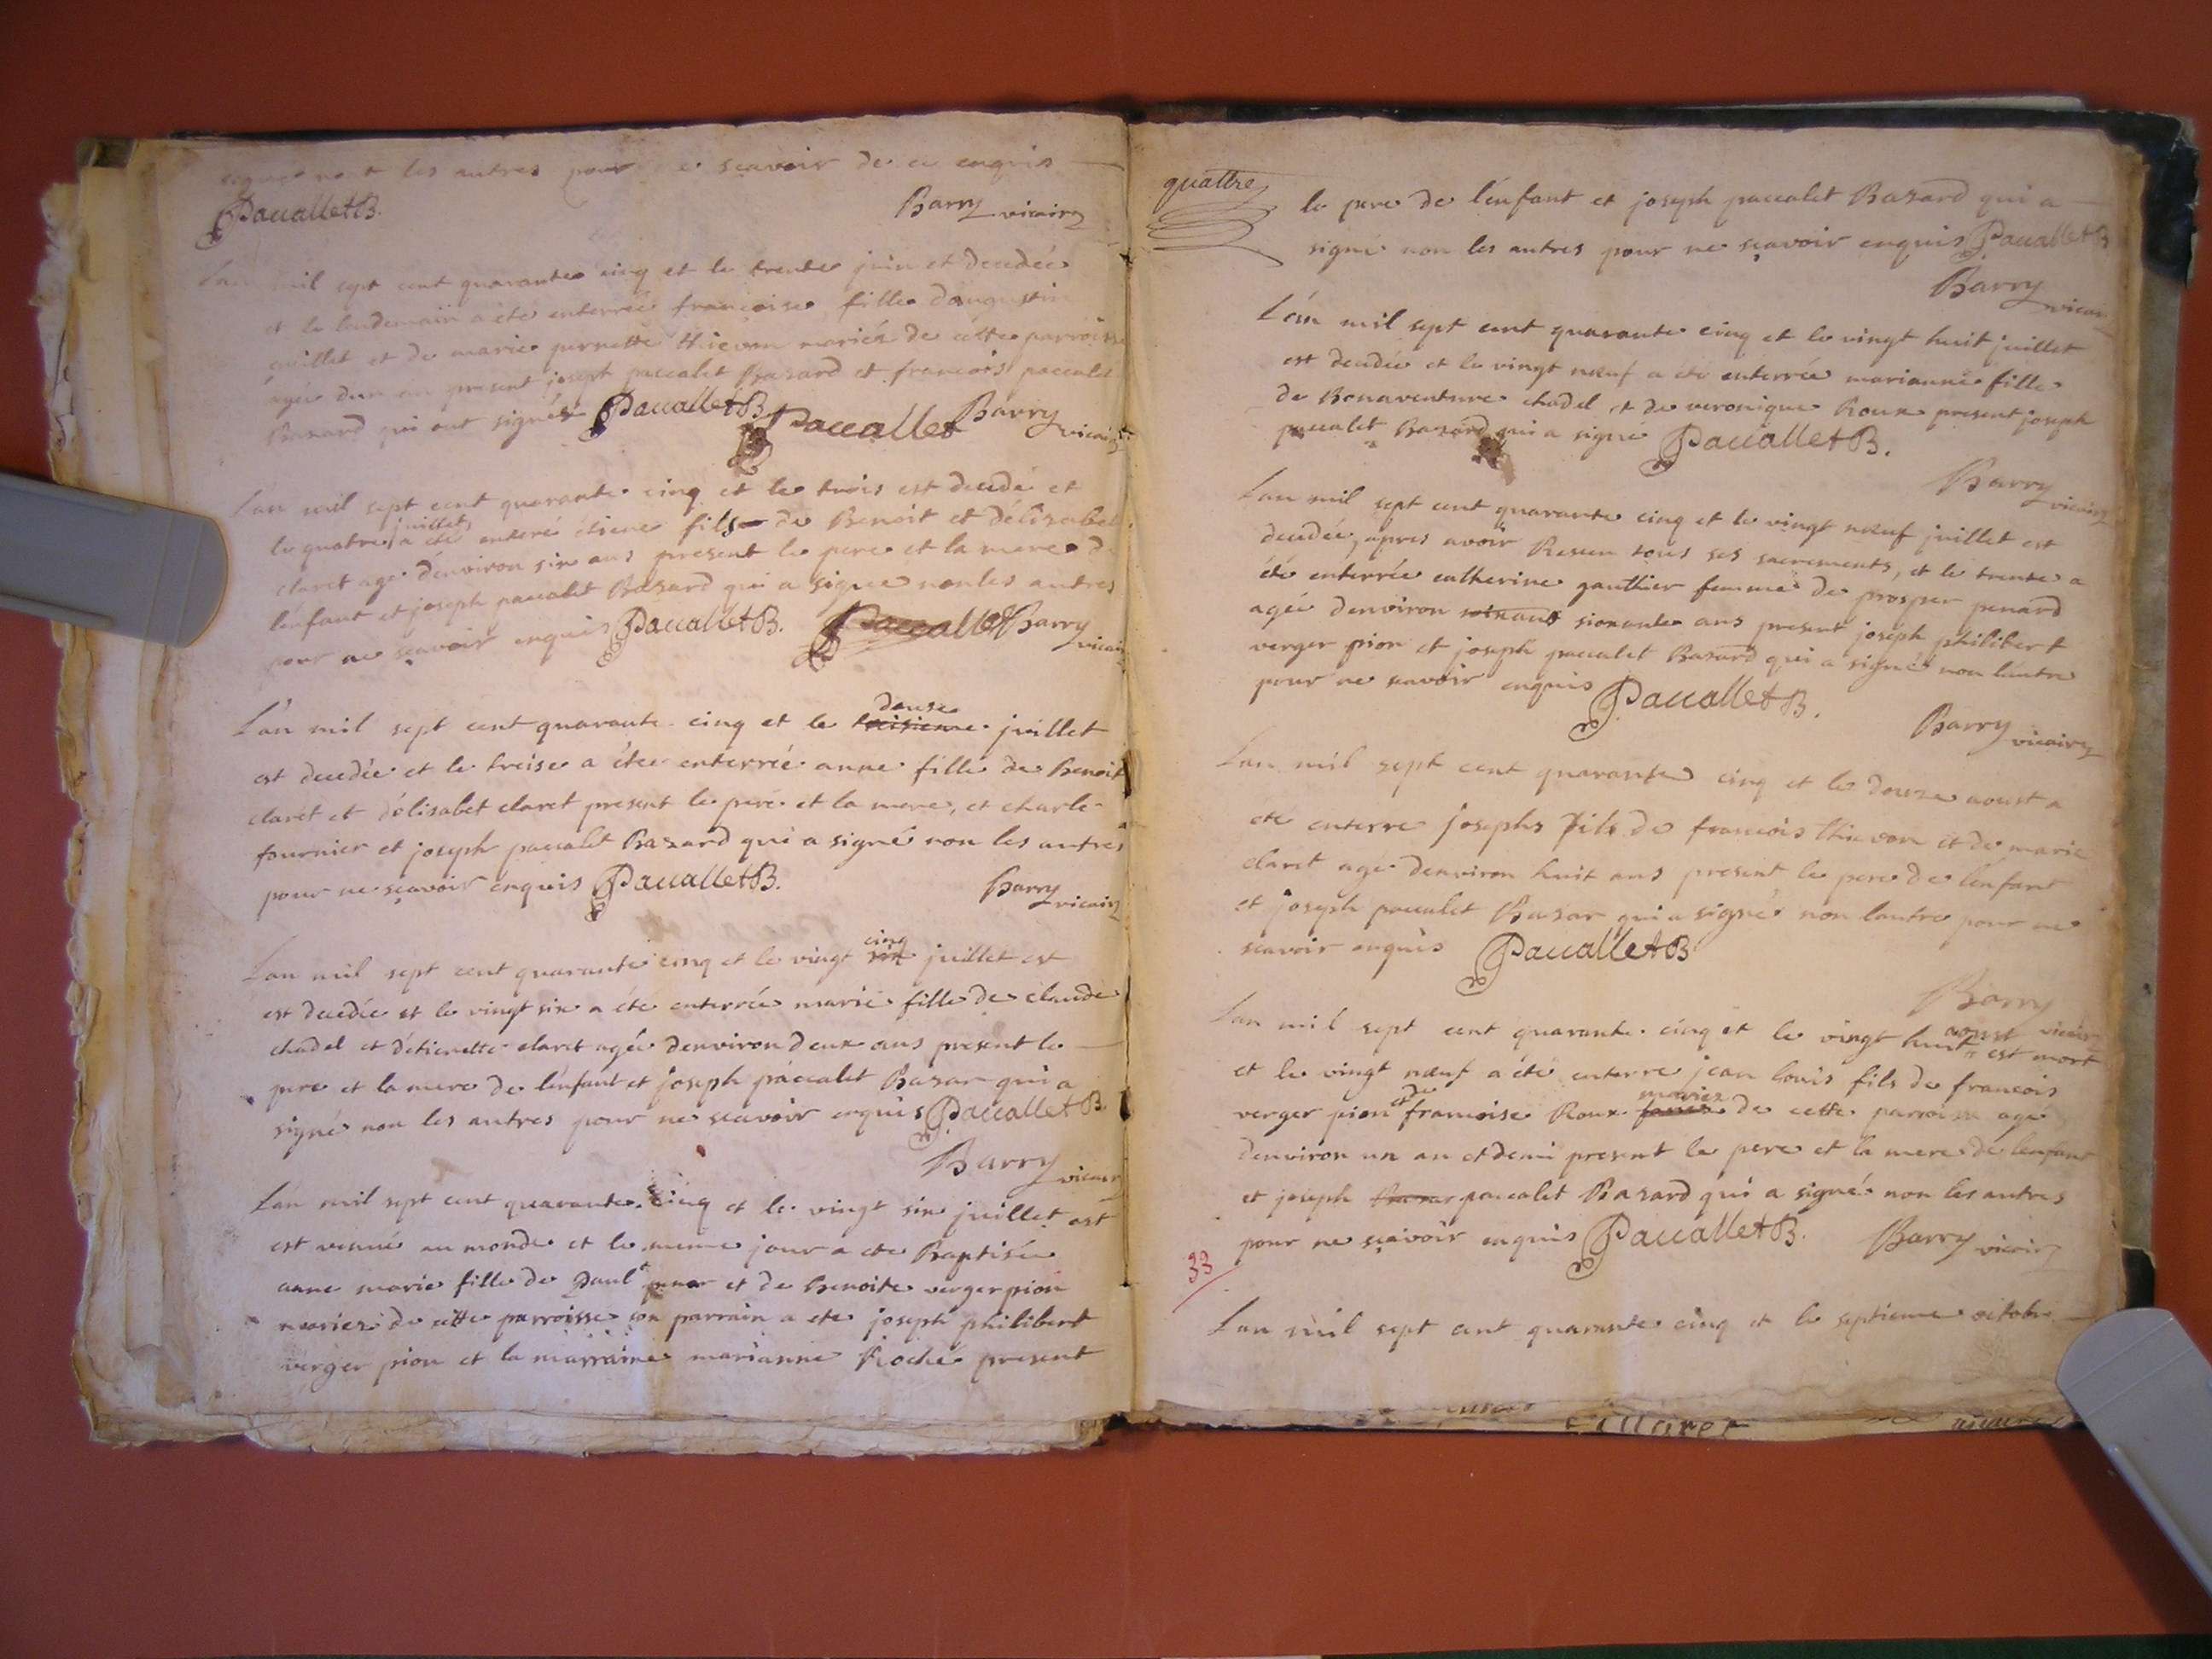 les autres pour ne scavoir de ce enquis
PaccalletB. Barry vicaire
Lan mil sept cent quarante cinq et le trente juin est decedée
et le lendemain a été enterrée francoise fille daugustin
et de marie pernette thievon mariés de cette parroisse
agée dun an present joseph paccalet Bazard et francois paccalet
Bazard qui ont signés PaccalletB. Paccallet Barry vicaire
Lan mil sept cent quarante cinq et le trois est decedé et
le quatre juillet a été enteré étiene fils de Benoit et délizabet
claret age denviron six ans present le pere et la mere de
lenfant et joseph paccalet Bazard qui a signé non les autres
pour ne sçavoir enquis PaccalletB. Paccallet Barry vicaire
L'an mil sept cent quarante cinq et le treisieme douse juillet
est decedée et le treise a étee enterrée anne fille de Benoit
claret et délisabet claret present le pere et la mere, et charle
fournier et joseph paccalet Bazard qui a signé non les autres
pour ne sçavoir enquis PaccalletB. Barry vicaire
Lan mil sept cent quarante cinq et le vingt six cinq juillet est
est decedée et le vingt six a été enterrée marie fille de claude
chadel et détienette claret agée denviron deux ans present le
pere et la mere de lenfant et joseph paccalet Bazar qui a
signé non les autres pour ne sçavoir enquis PaccalletB.
Barry vicaire
L'an mil sept cent quarante cinq et le vingt six juillet est
est venue au monde et le meme jour a ete Baptisée
anne marie fille de paul penar et de Benoite vergerpion
mariez de cette parroisse son parrain a ete joseph philibert
verger pion et la marraine marianne Roche present
quattre
le pere de lenfant et joseph paccalet Bazard qui a
signé non les autres pour ne sçavoir enquis PaccalletB
Barry vicaire
L'an mil sept cent quarante cinq et le vingt huit juillet
est decedée et le vingt nœuf a été enterrée marianne fille
de Bonaventure chadel et de veronique Roux present joseph
paccalet Bazard qui a signé PaccalletB.
Barry vicaire
Lan mil sept cent quarante cinq et le vingt nœuf juillet est
decedée, apres avoir Reseu tous ses sacrements, et le trente a
été enterrée catherine gauthier femme de prosper penard
agée denviron soixans sioxante ans present joseph philibert
verger pion et joseph paccalet Bazard qui a signé non lautre
pour ne scavoir enquis PaccalletB.
Barry vicaire
Lan mil sept cent quarante cinq et le douze aoust a
eté enterre josephs fils de francois thievon et de marie
claret age denviron huit ans present le pere de lenfant
et joseph paccalet Bazar qui a signé non lautre pour ne
scavoir enquis PaccalletB
Barry vicaire
Lan mil sept cent quarante cinq et le vingt huit aoust est mort
et le vingt nœuf a été enterre jean louis fils de francois
verger pion et de francoise Roux mariez de cette parroisse age
denviron un an et demi present le pere et la mere de lenfant
et joseph Bazar paccalet Bazard qui a signé non les autres
pour ne sçavoir enquis PaccalletB. Barry vicaire
33
Lan mil sept cent quarante cinq et le septieme octobre